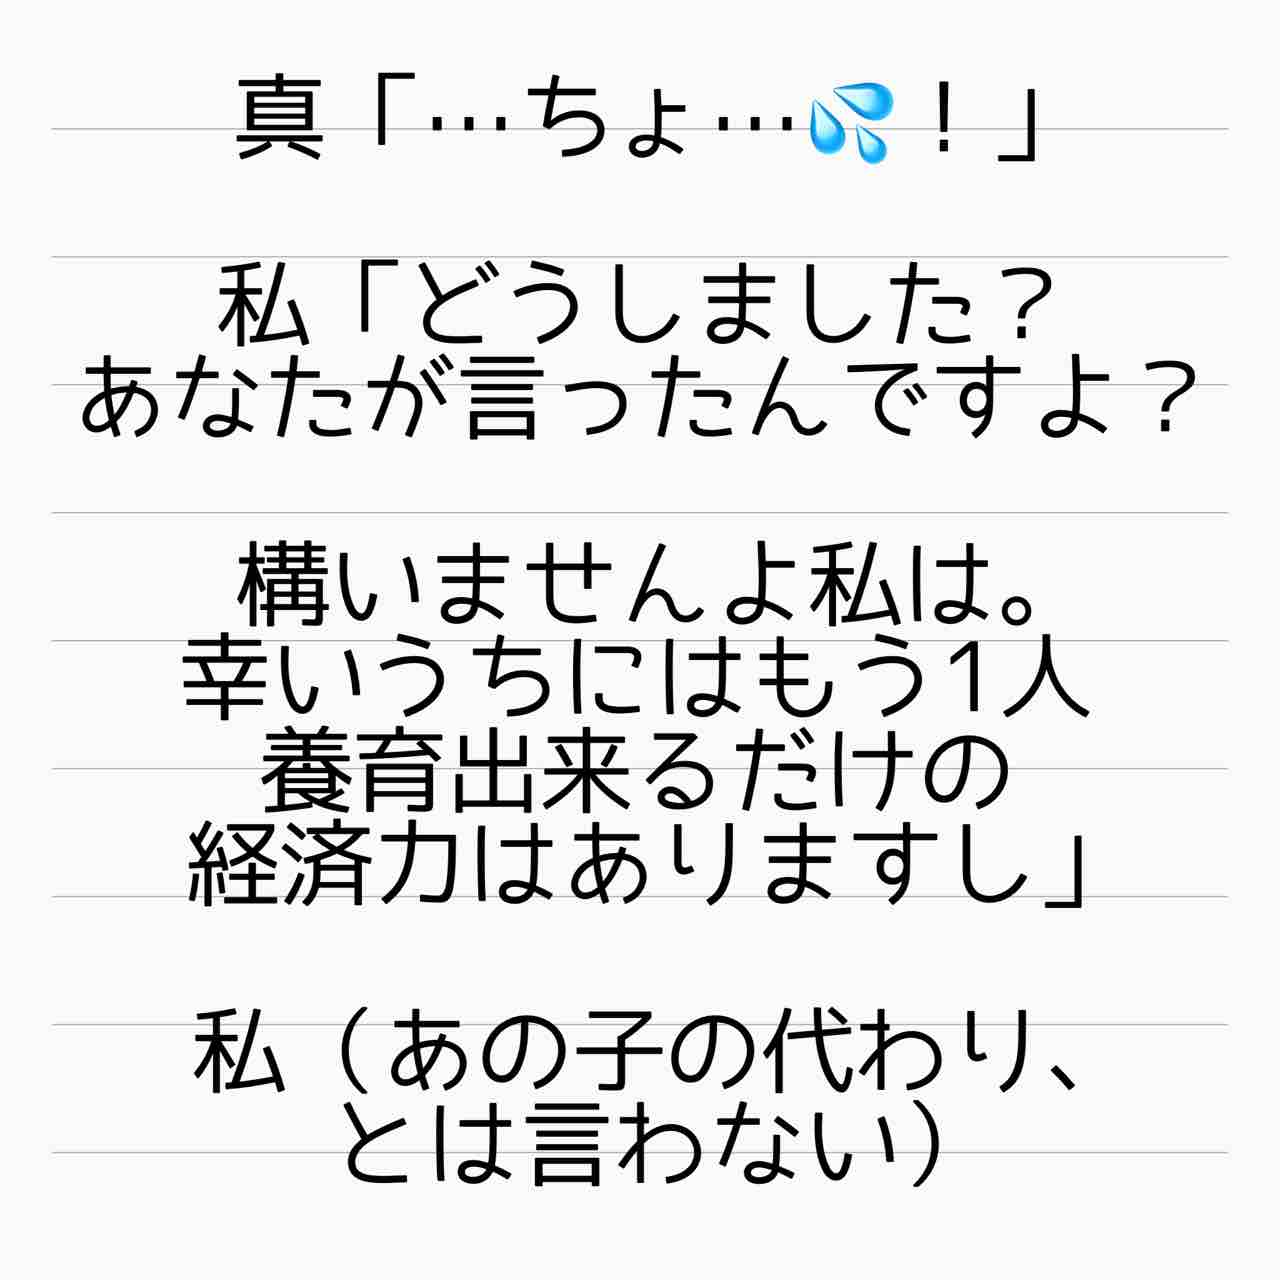 真「…ちょ…💦！」
私「どうしました？
あなたが言ったんですよ？
構いませんよ私は。
幸いうちにはもう1人
養育出来るだけの
経済力はありますし」
私（あの子の代わり、
とは言わない）